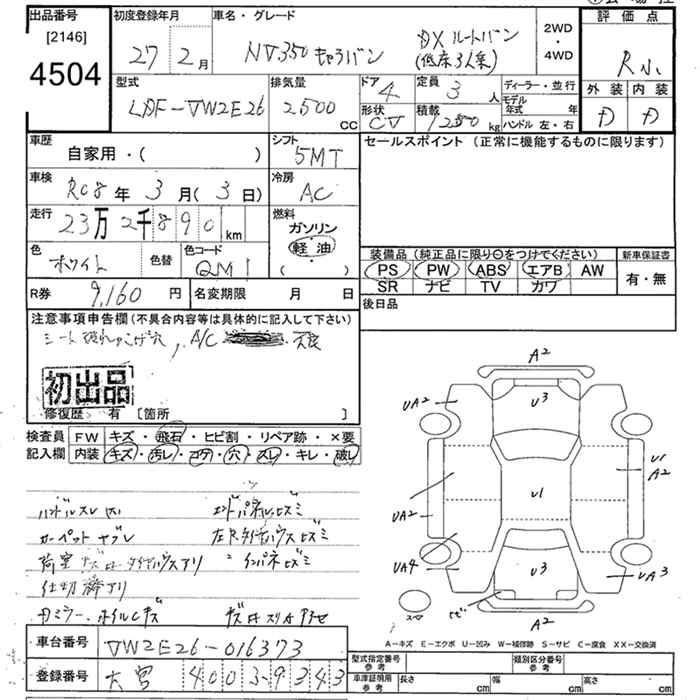 出品番号
[2146]
4504
初度登録年月
27年 2月
車名・グレード
NV350 キャラバン
DX ルートバン
(低床3人乗)
2WD
・
4WD
評価点
R小
外装 内装
D D
型式
LDF-VW2E26
排気量
2500
cc
ドア
4
定員
3
人
形状
CV
積載
1250
kg
ディーラー・並行
モデル年式 年
ハンドル 左・右
車歴
自家用・( )
シフト
5MT
車検
R08年 3月(3日)
冷房
AC
走行
23万2千890
km
燃料
ガソリン
軽油
( ・ )
色
ホワイト
色替
色コード
QM1
R券
9,160 円
名変期限 月 日
セールスポイント (正常に機能するものに限ります)
装備品 (純正品に限り○をつけてください)
PS PW ABS エアB AW
SR ナビ TV カワ
新車保証書
有・無
後日品
注意事項申告欄(不具合内容等は具体的に記入して下さい)
シート破れ
A/C
初出品
修復歴 有 [箇所 ]
検査員
記入欄
FW キズ・飛石・ヒビ割・リペア跡・×要
内装 キズ・汚レ・コゲ・穴・スレ・キレ・破レ
ハンドルスレ
エンドパネルヒズミ
カーペット
左Rタイヤハウスヒズミ
荷室 キズ サビ タイヤハウスアリ
インパネヒズミ
仕切 アリ
ホイルCキズ
車台番号
VW2E26-016373
登録番号
大宮 400 3-9343
A2
UA2
U3
U1
A2
U1
UA2
UA4
U3
UA3
A2
A－キズ E－エクボ U－凹み W－補修跡 S－サビ C－腐食 XX－交換済
型式指定番号
参考
類別区分番号
参考
車庫証明用
参考
長さ cm 幅 cm 高さ cm